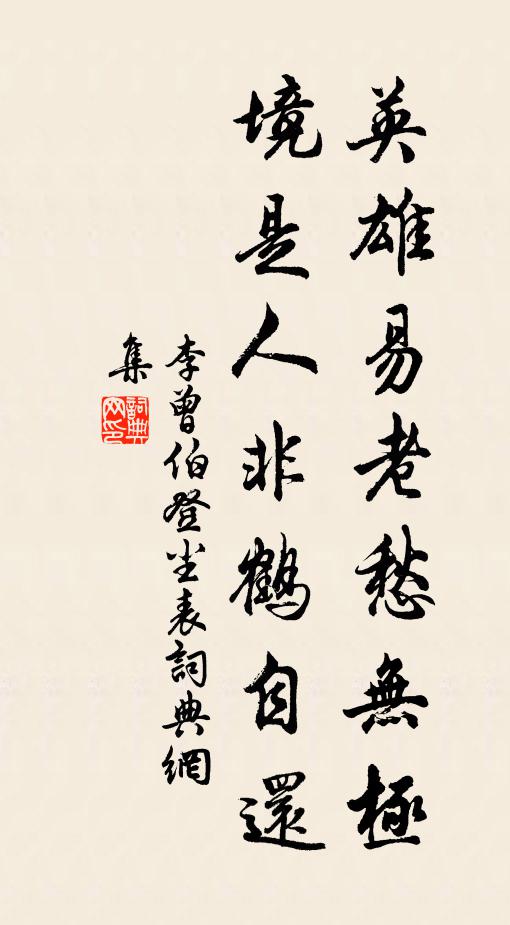 英雄易老愁無極
境是人非鶴自還
李曾伯登坐表詞典網
集
詞典網印